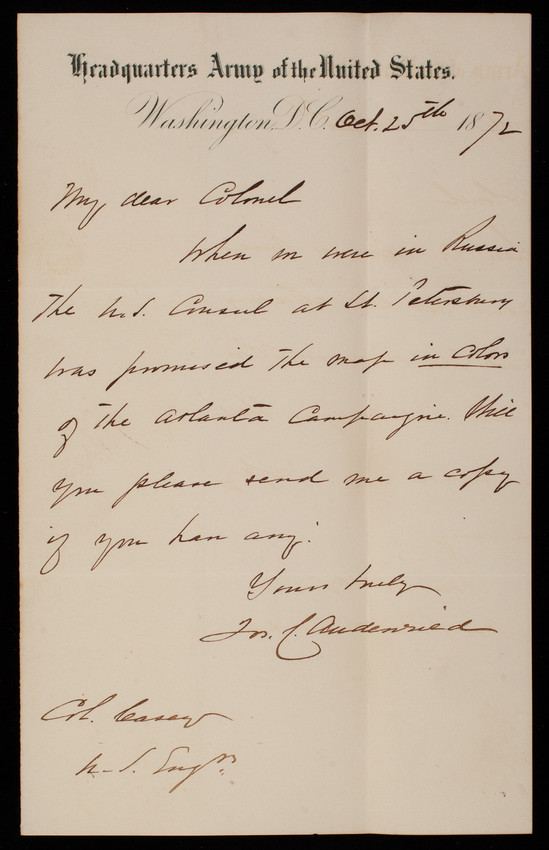 Headquarters Army of the United States.
Washington, D.C. Oct. 25th 1872
My dear Colonel
When we were in Russia
the U.S. Consul at St. Petersburg
was promised the map in colors
of the Atlanta Campaign. Will
you please send me a copy
if you have any.
Yours truly
Jos. C. Audenried
Col. Casey
U.S. Engrs.